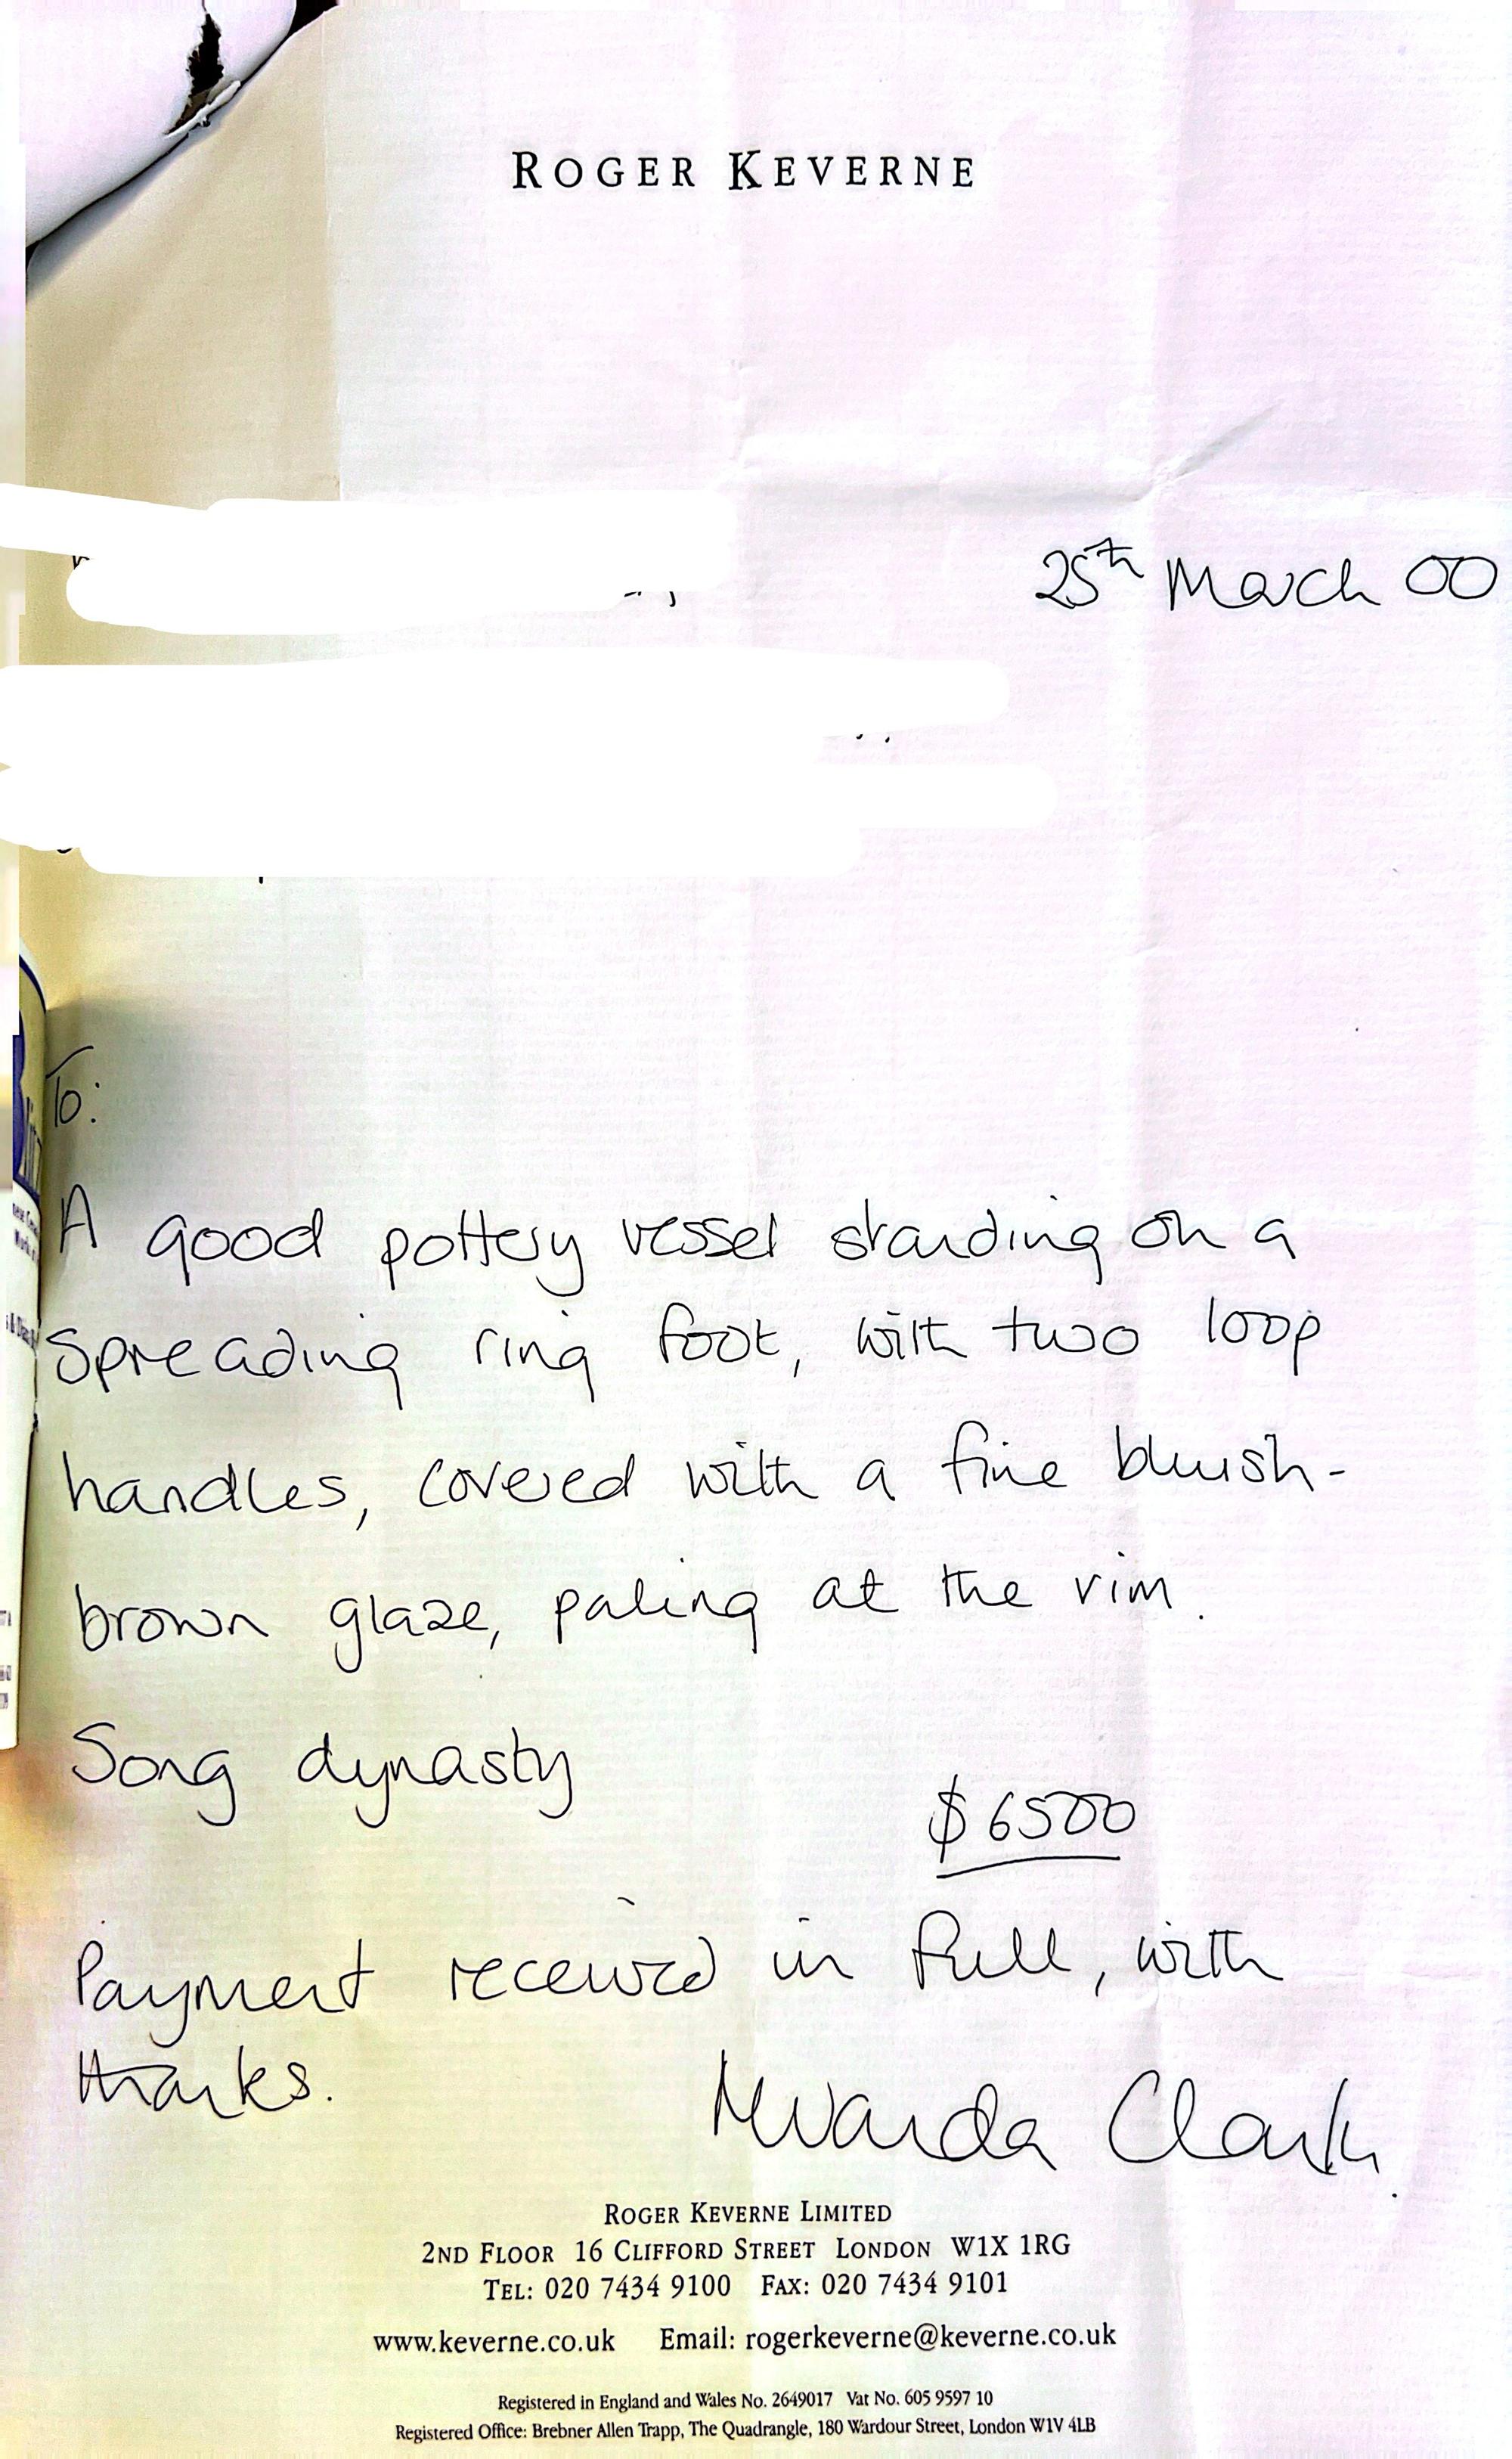 ROGER KEVERNE
25th March 00
To:
A good pottery vessel standing on a
spreading ring foot, with two loop
handles, covered with a fine bluish-
brown glaze, paling at the rim.
Song dynasty
$6500
Payment received in full, with
thanks.
Clark
ROGER KEVERNE LIMITED
2ND FLOOR 16 CLIFFORD STREET LONDON W1X 1RG
TEL: 020 7434 9100 FAX: 020 7434 9101
www.keverne.co.uk Email: rogerkeverne@keverne.co.uk
Registered in England and Wales No. 2649017 Vat No. 605 9597 10
Registered Office: Brebner Allen Trapp, The Quadrangle, 180 Wardour Street, London W1V 4LB